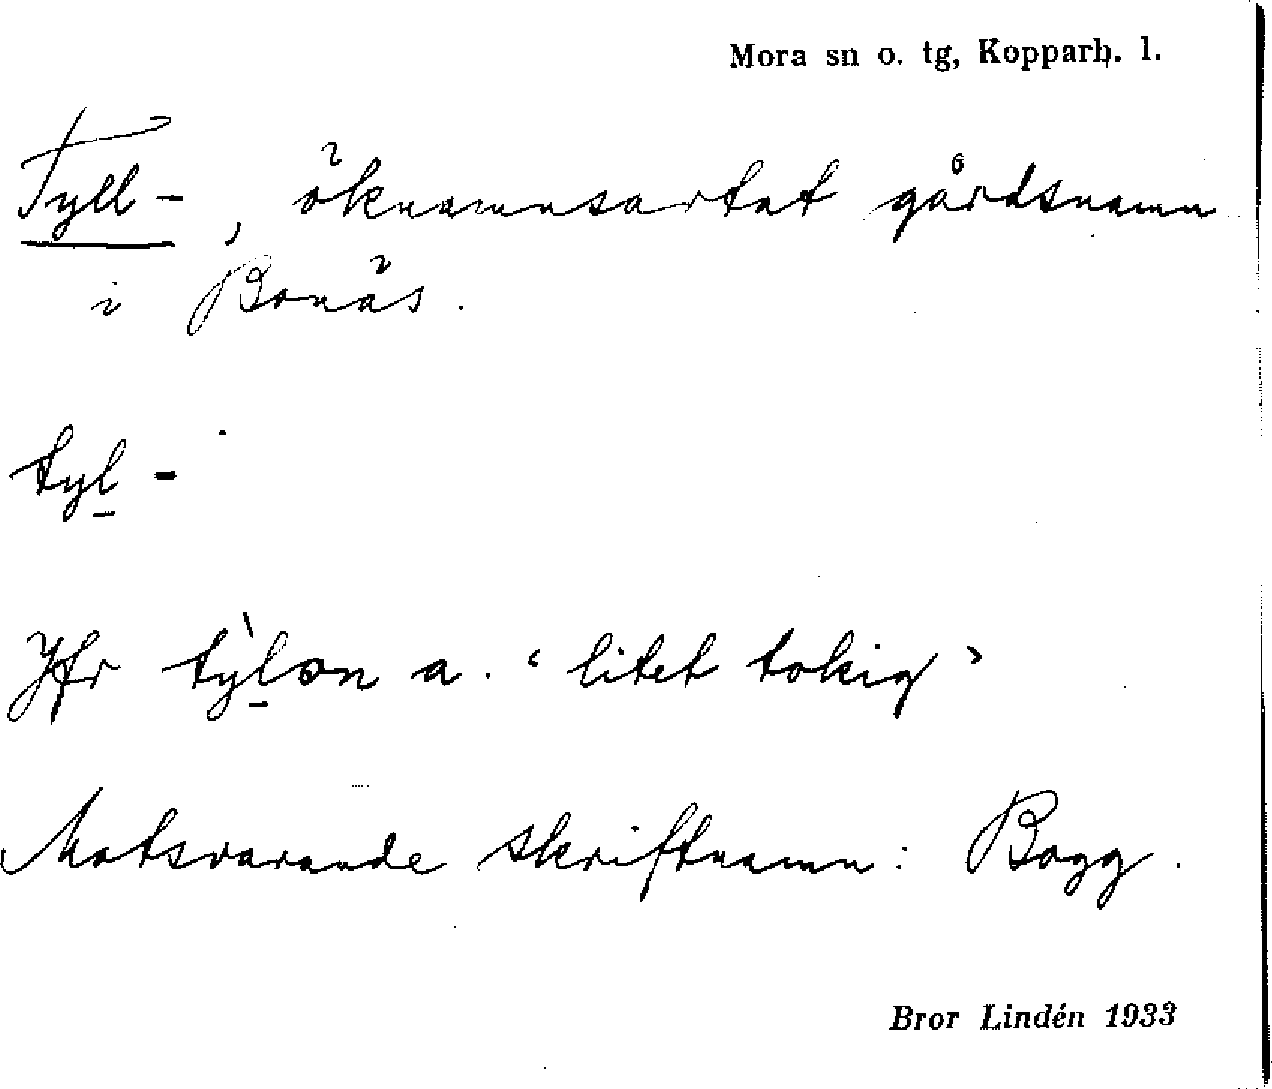 Mora sn o. tg, Kopparb. l.
Tyll-, öknamnsartat gårdsnamn
i Bonäs.
tyl̠-
Jfr tỳl̠ən a. ‘litet tokig’
Motsvarande skriftnamn: Bogg.
Bror Lindén 1933